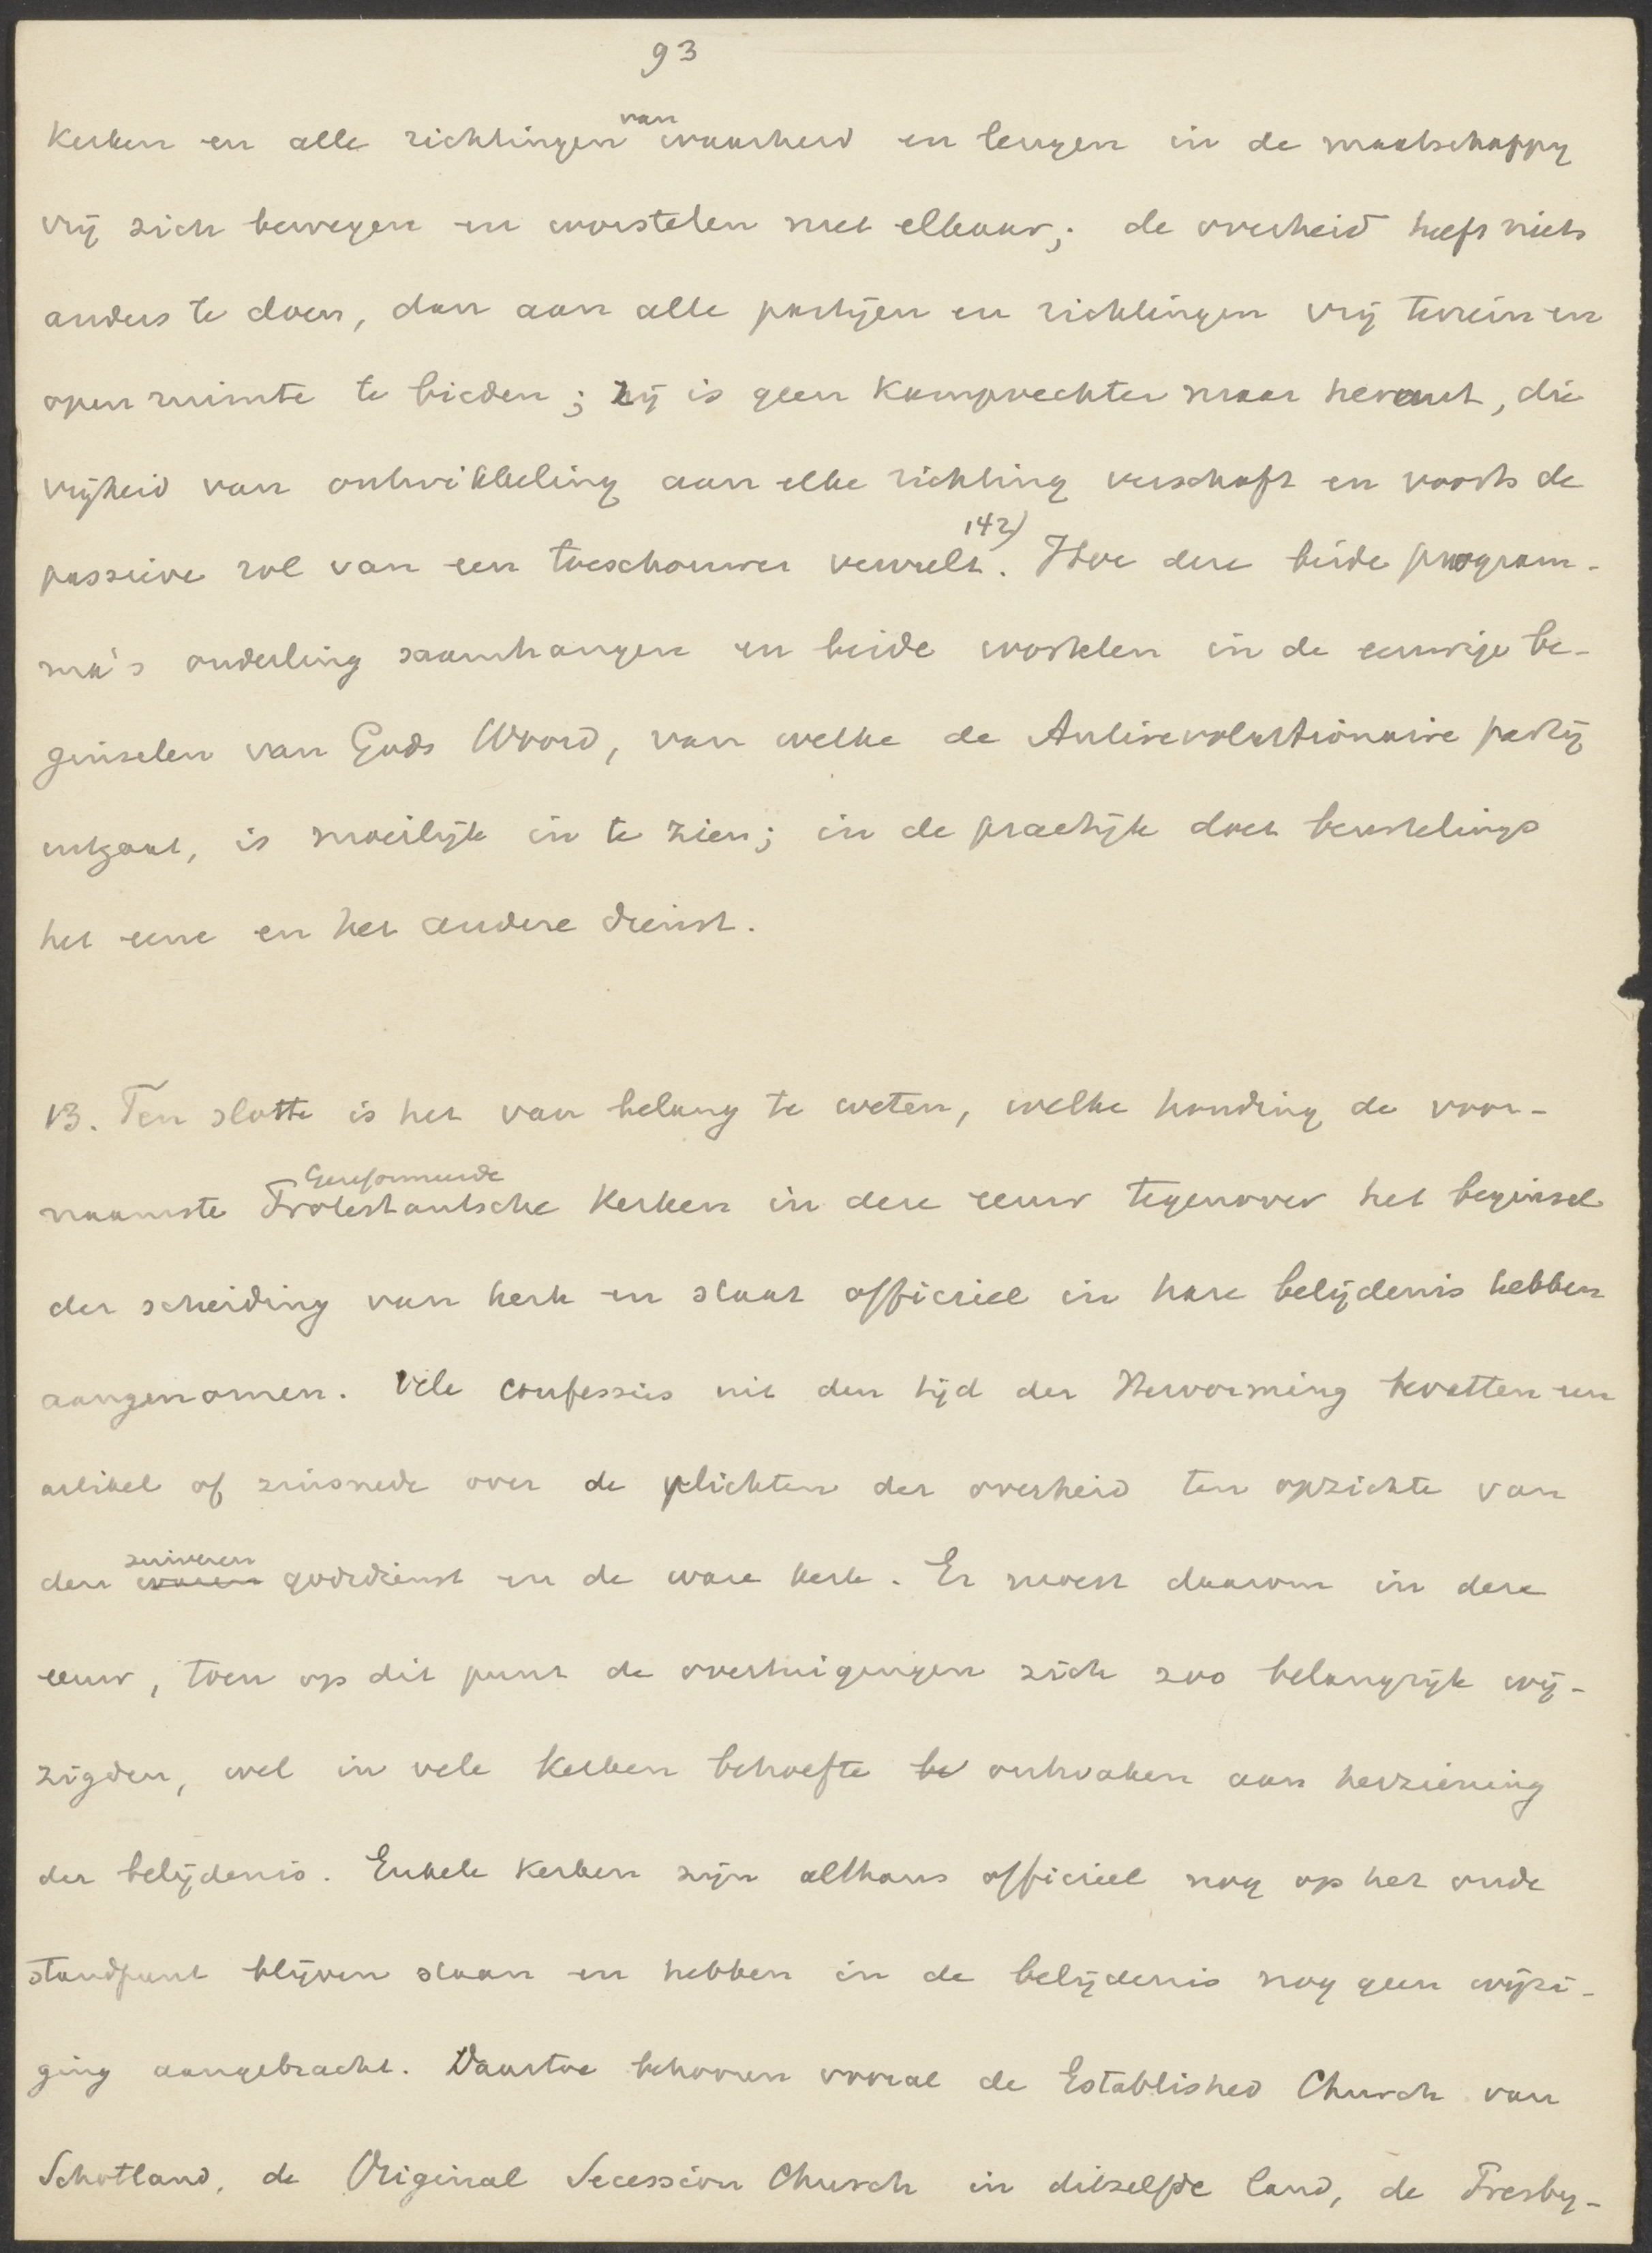 93
kerken en alle richtingen van waarheid en leugen in de maatschappy
vrij zich bewegen en worstelen met elkaar; de overheid heeft niets
anders te doen, dan aan alle partijen en richtingen vrij terrein en
open ruimte te bieden; zij is geen kamprechter maar heraut, die
vrijheid van ontwikkeling aan elke richting verschaft en voorts de
passieve rol van een toeschouwer vervult. 142) Hoe deze beide program-
ma's onderling saamhangen en beide wortelen in de eeuwige be-
ginselen van Gods Woord, van welke de Antirevolutionaire partij
uitgaat, is moeilijk in te zien; in de practijk doet beurtelings
het eene en het andere dienst.
13. Ten slotte is het van belang te weten, welke houding de voor-
naamste Gereformeerde Protestantsche kerken in deze eeuw tegenover het beginsel
der scheiding van kerk en staat officieel in hare belijdenis hebben
aangenomen. Vele confessies uit den tijd der Hervorming bevatten een
artikel of zinsnede over de plichten der overheid ten opzichte van
den waren zuiveren godsdienst en de ware kerk. Er moest daarom in deze
eeuw, toen op dit punt de overtuigingen zich zoo belangrijk wij-
zigden, wel in vele kerken behoefte be ontwaken aan herziening
der belijdenis. Enkele kerken zijn althans officieel nog op het oude
standpunt blijven staan en hebben in de belijdenis nog geen wijzi-
ging aangebracht. Daartoe behooren vooral de Established Church van
Schotland, de Original Secession Church in ditzelfde land, de Presby-